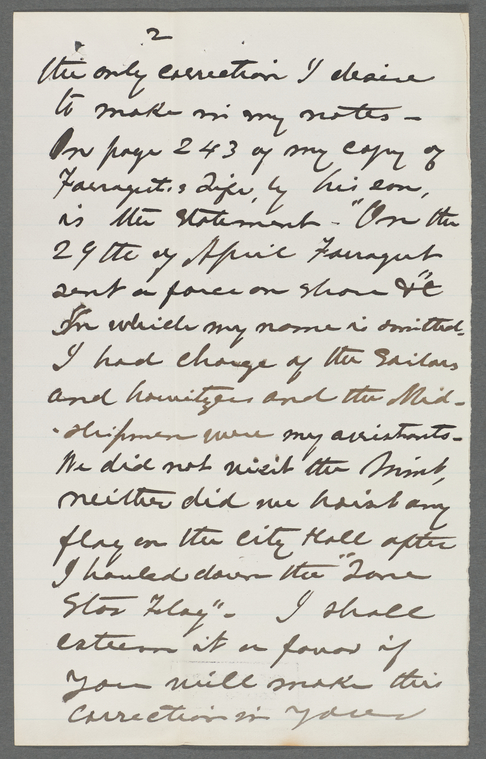 2
the only correction I desire
to make in my notes -
On page 243 of my copy of
Farragut's Life, by his son,
is the statement - "On the
29th of April Farragut
sent a force on shore &c"
In which my name is omitted.
I had charge of the Sailors
and howitzers and the Mid-
-shipmen were my assistants -
We did not visit the Mint,
neither did we hoist any
flag on the City Hall after
I hauled down the "Lone
Star Flag" - I shall
esteem it a favor if
you will make this
correction in your